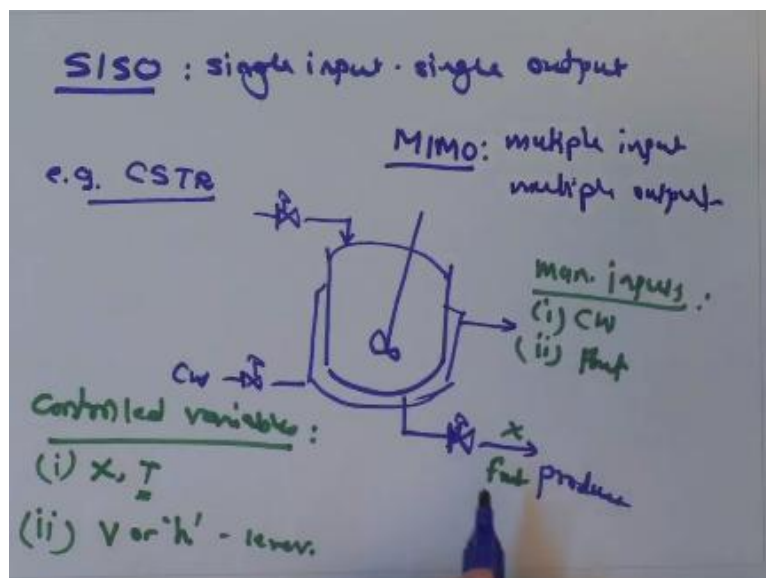 SISO : single input . single output
MIMO: multiple input
multiple output
e.g. CSTR
man. inputs :
(i) CW
(ii) Fout
CW
Controlled variables :
(i) X, T
(ii) V or 'h' - level.
X
Fout
produce